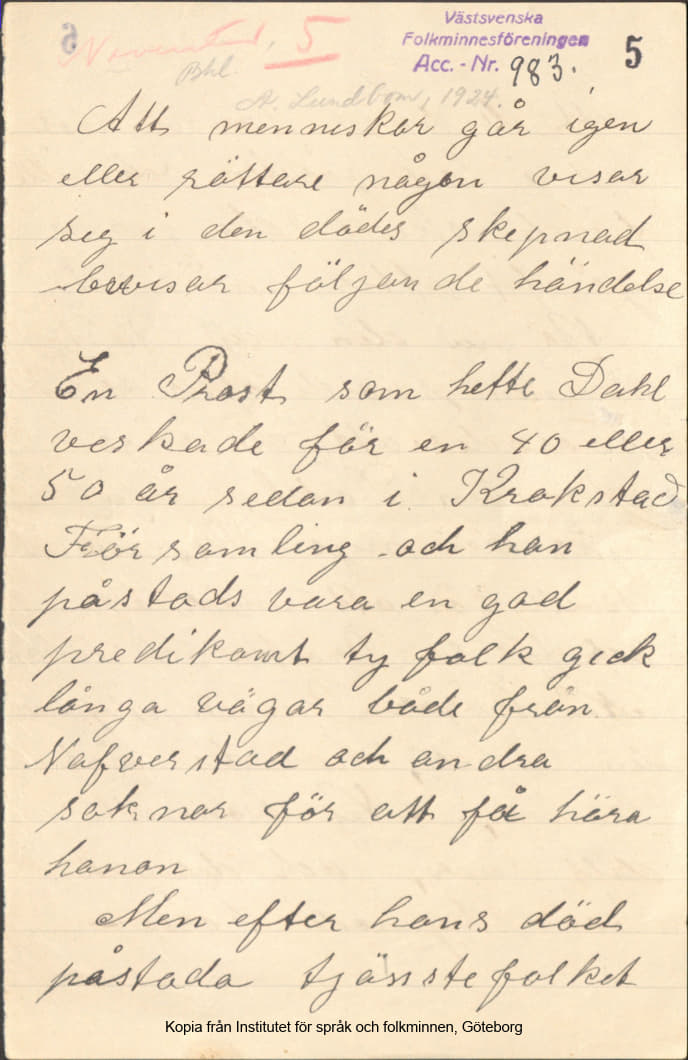 Västsvenska
Folkminnesföreningen
Acc. - Nr. 983.
5
6
5
Bhl.
A. Lundbom, 1924.
Att menniskor går igen
eller rättare någon visar
seg i den dödes skepnad
bevisar följande händelse
En Prost som hette Dahl
verkade för en 40 eller
50 år sedan i Krokstad
Församling och han
påstods vara en god
predikant ty folk gick
långa vägar både från
Nafverstad och andra
soknar för att få höra
honon
Men efter hans död
påstoda tjänstefolket
Kopia från Institutet för språk och folkminnen, Göteborg